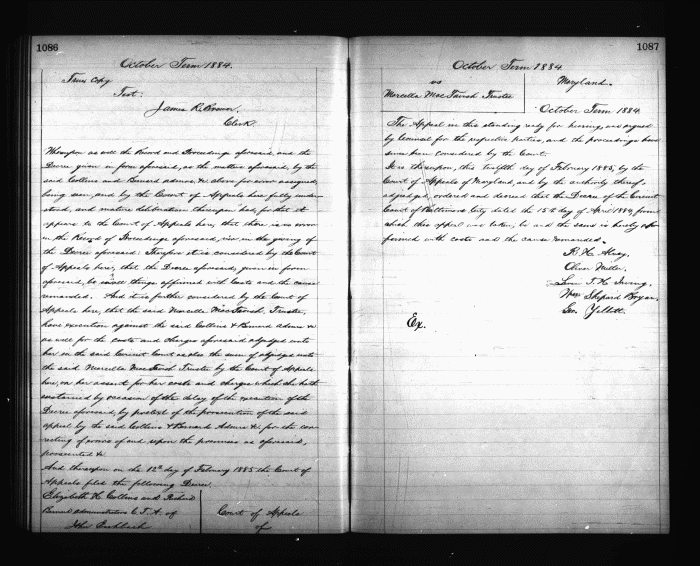 1086
October Term 1884.
True Copy
Test:
James R. Brown,
Clerk.
Whereupon as well the Record and Proceedings aforesaid, and the
Decree given in form aforesaid, as the matters aforesaid, by the
said Collins and Bernard Admrs &c above for error assigned,
being seen, and by the Court of Appeals here fully under
stood, and mature deliberation thereupon had, for that it
appears to the Court of Appeals here, that there is no error
in the Record of Proceedings aforesaid, nor in the giving of
the Decree aforesaid. Therefore it is considered by the Court
of Appeals here, that the Decree aforesaid, given in form
aforesaid, be in all things affirmed with Costs and the cause
remanded. And it is further considered by the Court of
Appeals here, that the said Marcella MacTavish, Trustee,
have execution against the said Collins & Bernard Admrs &c
as well for the costs and charges aforesaid adjudged unto
her in the said Circuit Court as also the sum of adjudged unto
the said Marcella MacTavish Trustee by the Court of Appeals
here, on her assent for her costs and charges which she hath
sustained by occasion of the delay of the execution of the
Decree aforesaid, by pretext of the prosecution of the said
appeal by the said Collins & Bernard Admrs &c for the cor
recting of errors of and upon the premises as aforesaid,
prosecuted &c
And thereupon on the 12th day of February 1885 the Court of
Appeals filed the following Decree
Elizabeth H. Collins and Richard
Bernard Administrators C.T.A. of
John
Court of Appeals
of
1087
October Term 1884
vs
Marcella MacTavish Trustee
Maryland.
October Term 1884.
The Appeal in this standing ready for hearing, was argued
by counsel for the respective parties, and the proceedings have
since been considered by the Court.
It is thereupon, this twelfth day of February 1885, by the
Court of Appeals of Maryland, and by the authority thereof
adjudged, ordered and decreed that the Decree of the Circuit
Court of Baltimore City dated the 15th day of April 1884 from
which this appeal was taken, be and the same is hereby af
firmed with costs and the cause remanded.
R. H. Alvey,
Oliver Miller,
Levin T. H. Irving,
Wm Shepard Bryan,
Geo. Yellott.
Ex.